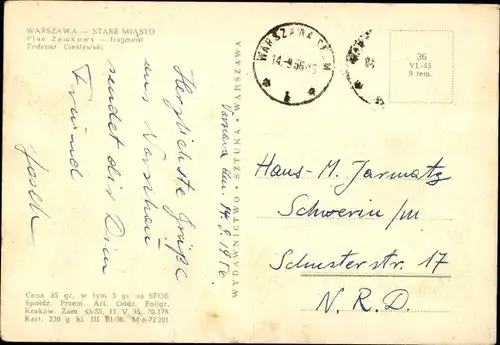 WARSZAWA — STARE MIASTO
Plac Zamkowy — fragment
Tadeusz Cieślewski
Warszawa den 14.9.1956
Herzlichste Grüße
aus Warschau
sendet dir Dein
Freund
Cena 35 gr, w tym 5 gr na SFOS
Spółdz. Przem. Art. Oddz. Poligr.
Kraków. Zam. 45/55, 11. V. 55, 20.176
Kart. 220 g kl. III B1/36. M-6-72281
WYDAWNICTWO • SZTUKA • WARSZAWA
WARSZAWA
14.9.56
1
36
VI-55
9 tem.
Hans-M. Jarmatz
Schwerin/M
Schusterstr. 17
N. R. D.